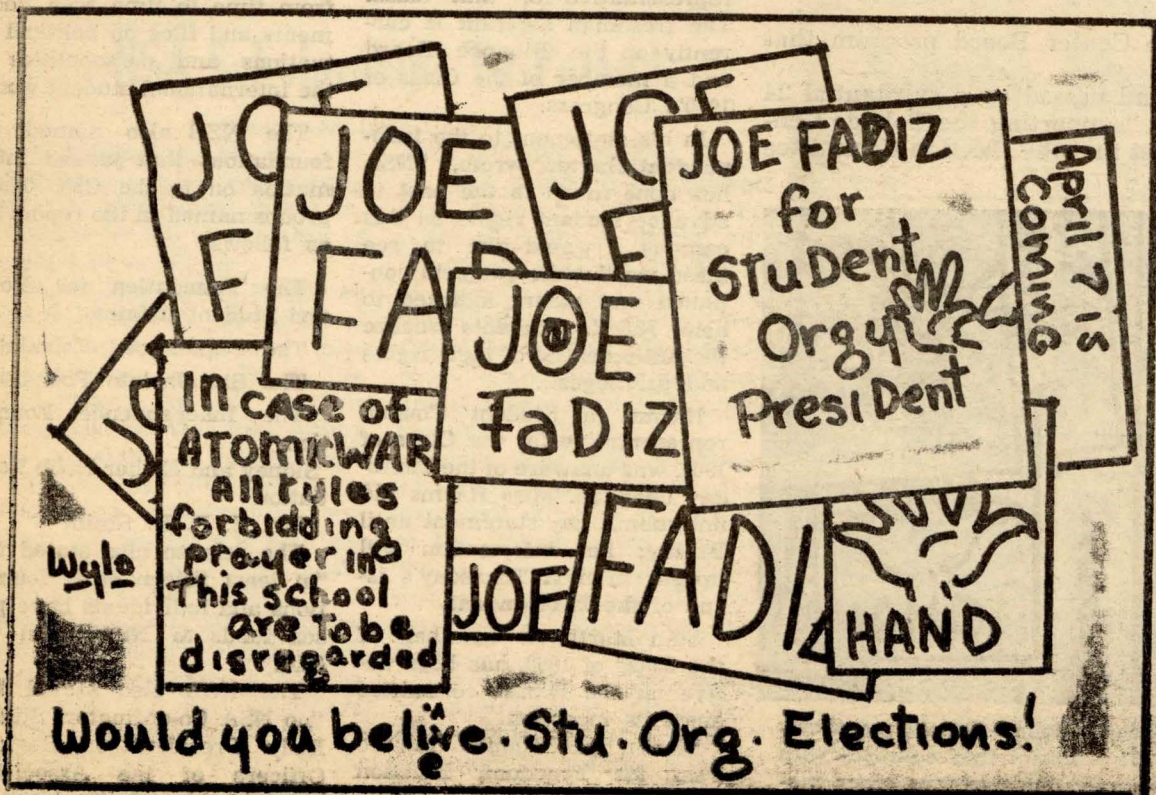 JOE
F
JOE
FAD
JOE
F
JOE FADIZ
for
StuDent
Orgy
PresiDent
April 7 is
COMING
JOE
FaDIZ
JO
IN CASE OF
ATOMIC WAR
All rules
forbidding
prayer in
This school
are To be
disregarded
JOE
FADIZ
HAND
Wylo
Would you belive. Stu. Org. Elections!
e